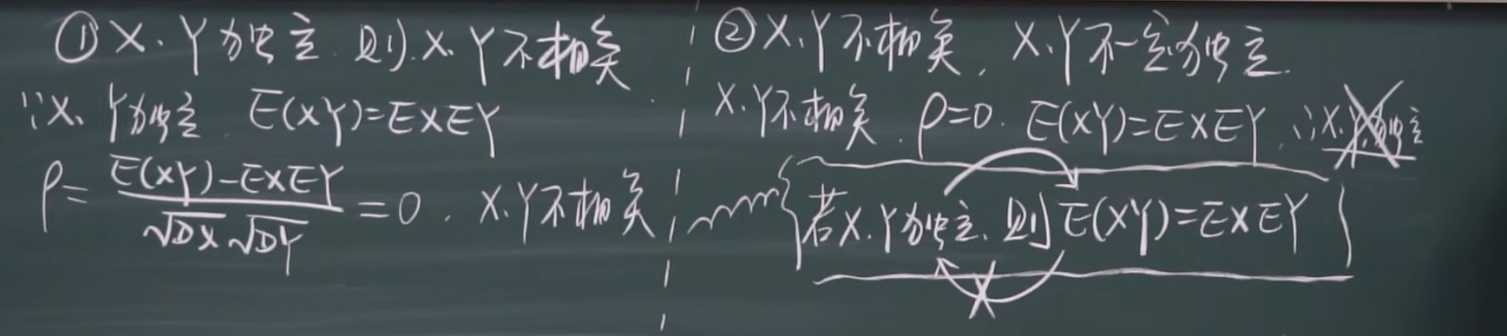 ①X.Y独立.则X.Y不相关
∵X.Y独立.E(XY)=EXEY
ρ=E(XY)-EXEY/√DX√DY=0.X.Y不相关
②X.Y不相关.X.Y不一定独立.
X.Y不相关.ρ=0.E(XY)=EXEY.∴X.Y独立
若X.Y独立.则E(XY)=EXEY